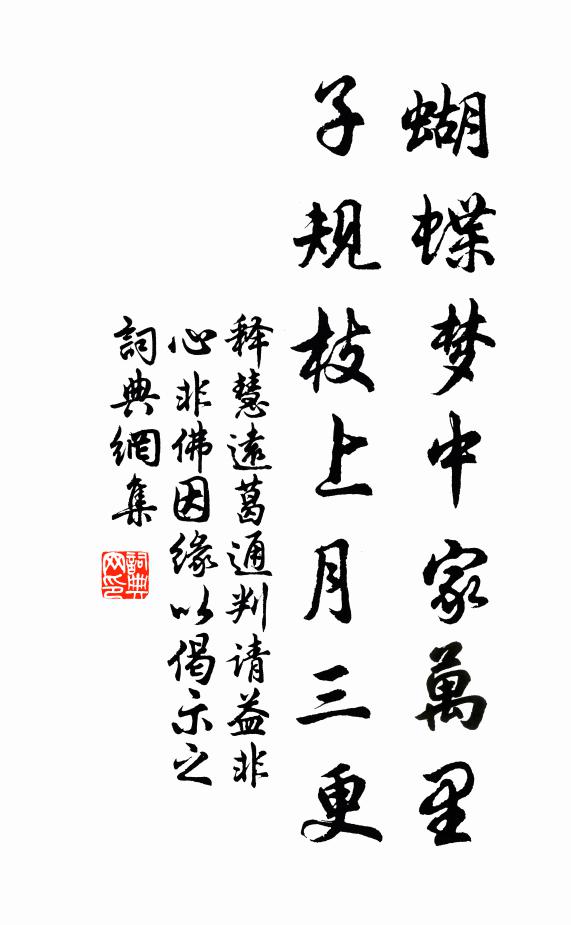 蝴蝶梦中家萬里
子规枝上月三更
释慧遠葛通判请益非
心非佛因缘以偈示之
詞典網集
詞典网印